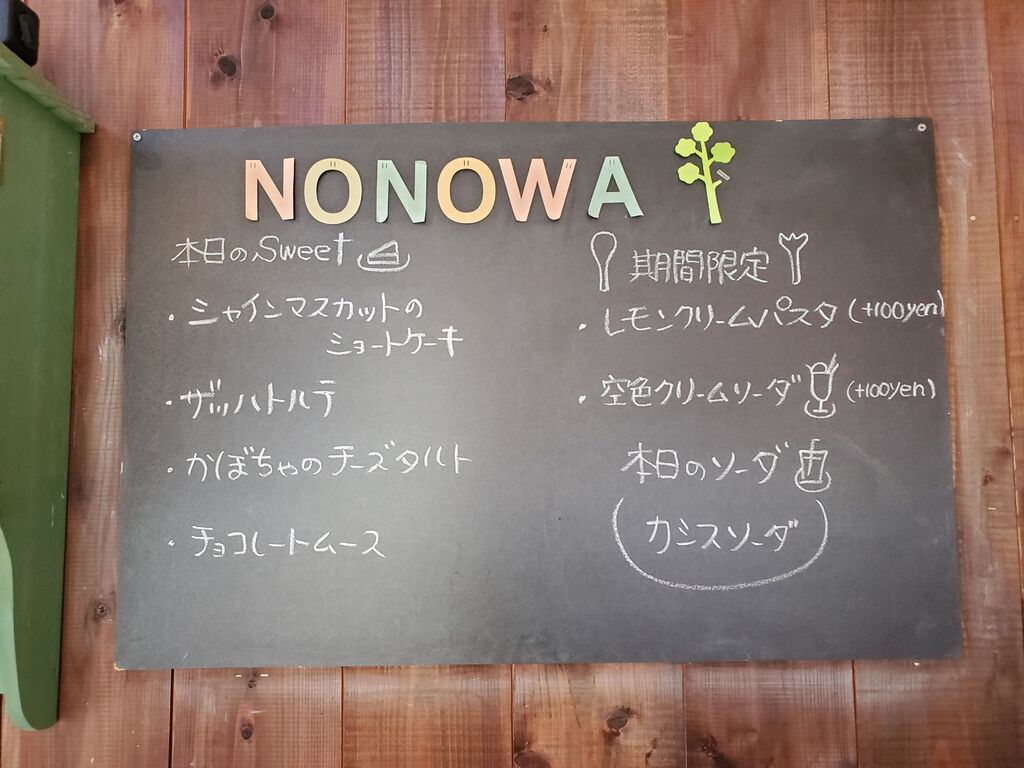 NONOWA
本日のSweet
・シャインマスカットの
ショートケーキ
・ザッハトルテ
・かぼちゃのチーズタルト
・チョコレートムース
期間限定
・レモンクリームパスタ (+100yen)
・空色クリームソーダ (+100yen)
本日のソーダ
カシスソーダ